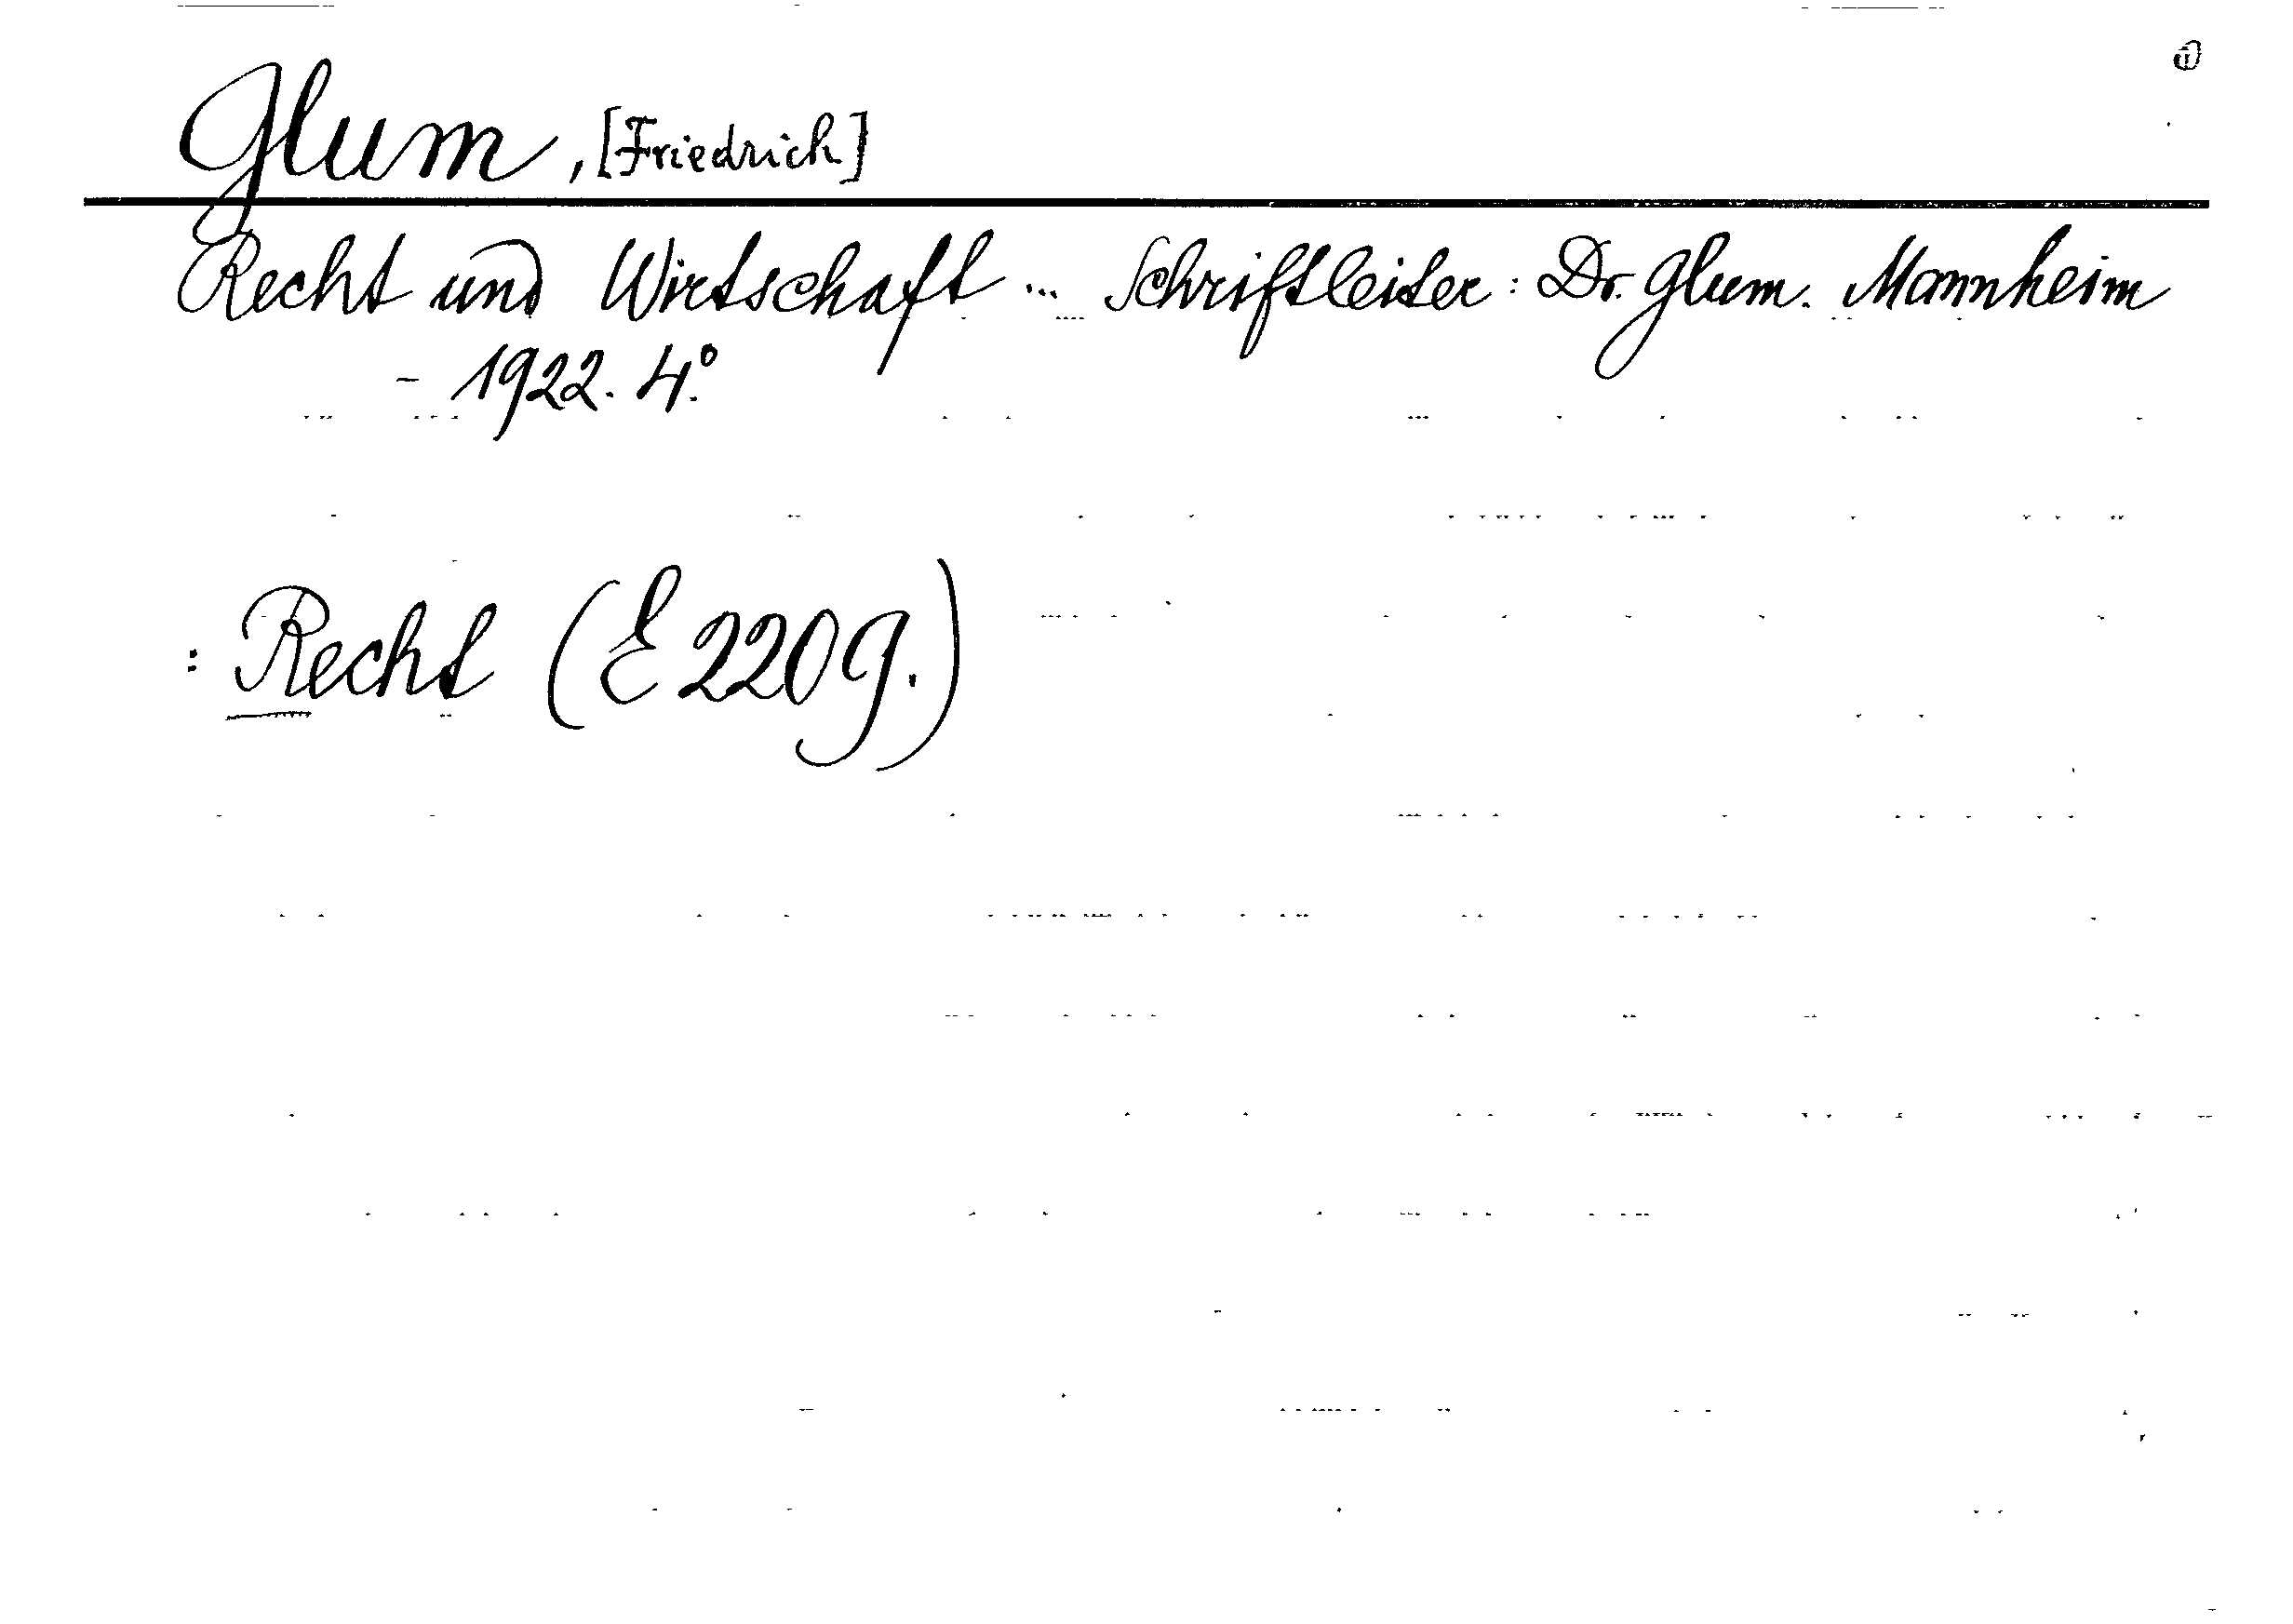 Glum, [Friedrich]
Recht und Wirtschaft ... Schriftleiter: Dr. Glum. Mannheim
- 1922. 4°.
: Recht (E 220 g.)